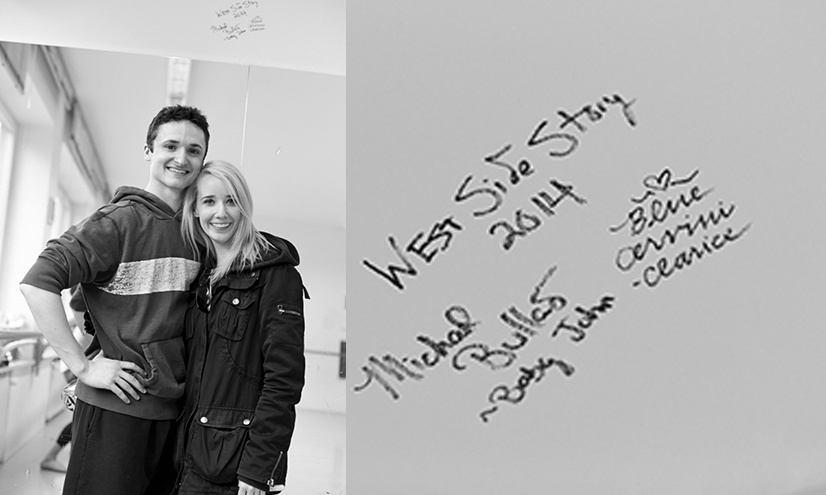 West Side Story
2014
Michal
Bulles
~Baby John
Blue
Cervini
-Clarice